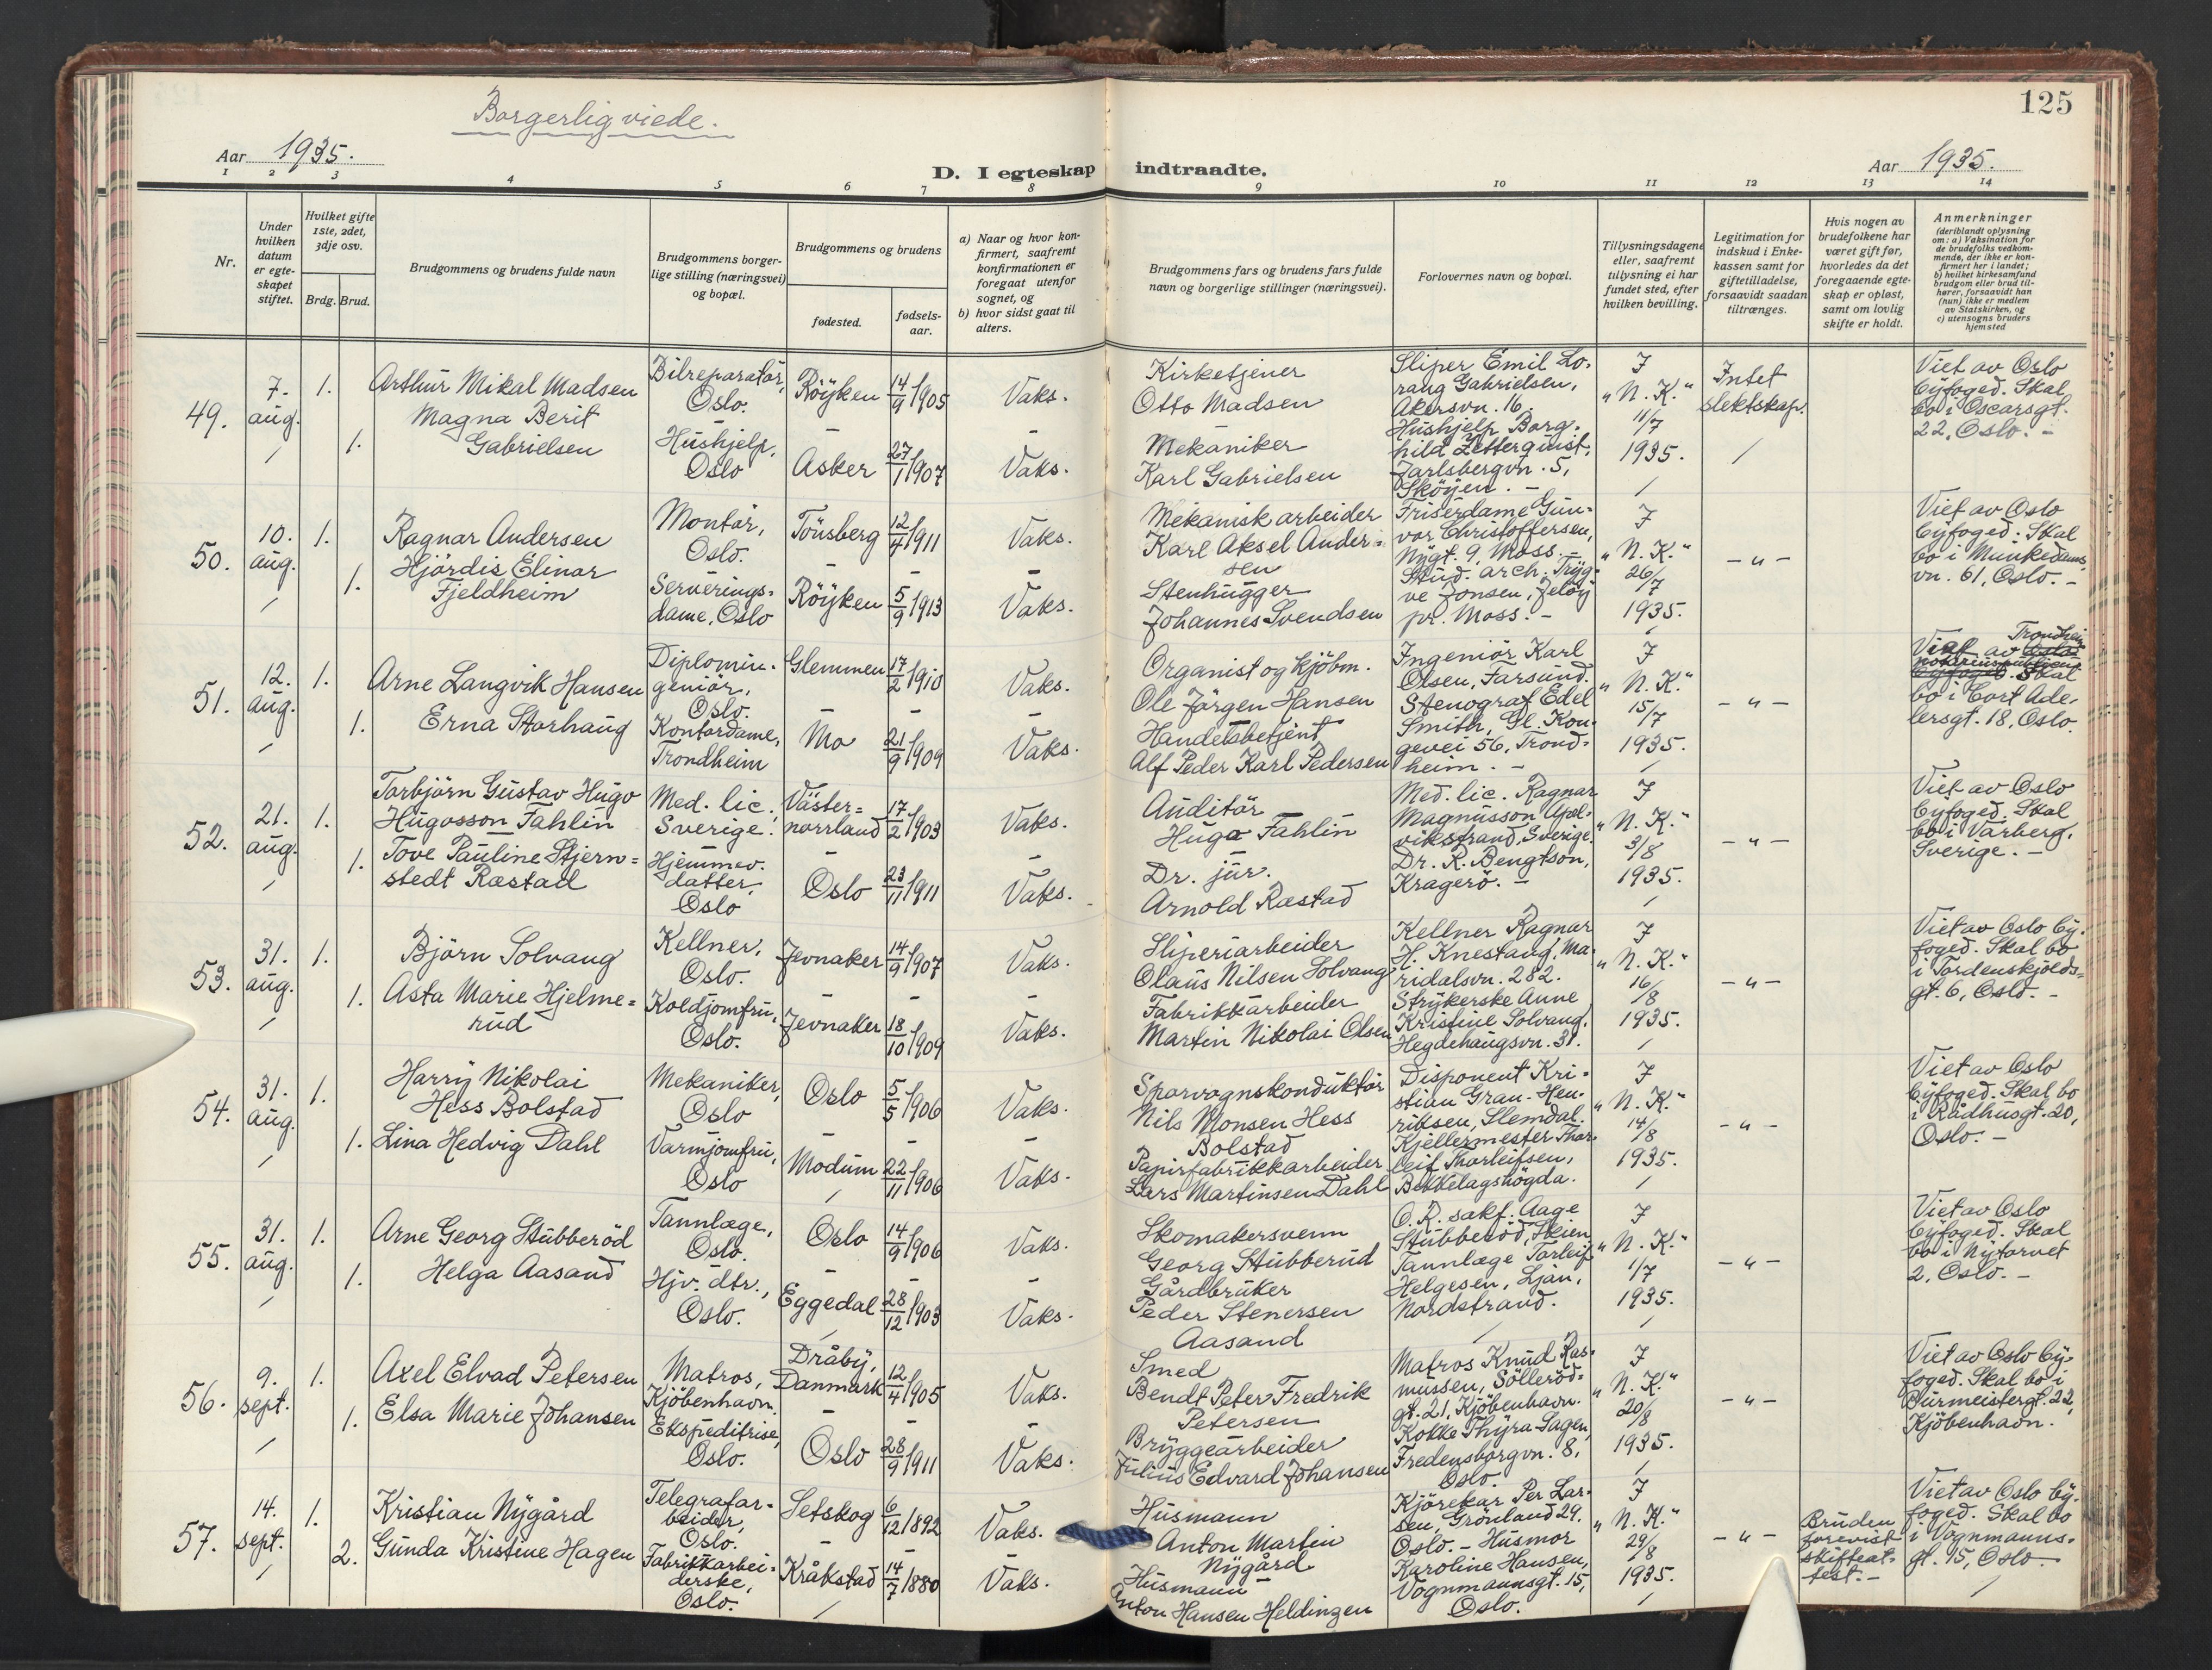 125
Borgerlig viede.
Aar 1935.
D. I egteskap indtraadte.
Aar 1935.
1 2 3 4 5 6 7 8 9 10 11 12 13 14
Nr.
Under hvilken datum er egteskapet stiftet.
Hvilket gifte 1ste, 2det, 3dje osv.
Brdg. Brud.
Brudgommens og brudens fulde navn
Brudgommens borgerlige stilling (næringsvei) og bopæl.
Brudgommens og brudens
fødested.
fødselsaar.
a) Naar og hvor konfirmert, saafremt konfirmationen er foregaat utenfor sognet, og
b) hvor sidst gaat til alters.
Brudgommens fars og brudens fars fulde navn og borgerlige stillinger (næringsvei).
Forlovernes navn og bopæl.
Tillysningsdagene eller, saafremt tillysning ei har fundet sted, efter hvilken bevilling.
Legitimation for indskud i Enkekassen samt for giftetilladelse, forsaavidt saadan tiltrænges.
Hvis nogen av brudefolkene har været gift før, hvorledes da det foregaaende egteskap er opløst, samt om lovlig skifte er holdt.
Anmerkninger (deriblandt oplysning om: a) Vaksination for de brudefolks vedkommende, der ikke er konfirmert her i landet; b) hvilket kirkesamfund brudgom eller brud tilhører, forsaavidt han (hun) ikke er medlem av Statskirken, og c) utensogns bruders hjemsted
49. 7. aug. 1. Arthur Mikal Madsen
Bilreparatör, Oslo. Röyken 14/9 1905 Vaks.
Kirketjener Otto Madsen
1. Magna Berit Gabrielsen
Hushjelp, Oslo Asker 27/1 1907 Vaks.
Mekaniker Karl Gabrielsen
Sliper Emil Lorang Gabrielsen, Akersvn. 16, Hushjelp Borghild Zetterquist, Jarlsbergvn. 5, Sköyen. -
I "N. K." 11/7 1935.
Intet slektskap.
Viet av Oslo byfoged. Skal bo i Oscarsgt. 22, Oslo. -
50. 10. aug. 1. Ragnar Andersen
Montör, Oslo. Tönsberg 12/4 1911 Vaks.
Mekanisk arbeider Karl Aksel Andersen
1. Hjördis Elinor Fjeldheim
Serveringsdame, Oslo Röyken 5/9 1913 Vaks.
Stenhugger Johannes Svendsen
Friserdame Gunvor Christoffersen, Nygt. 9, Moss. - Stud. arch. Trygve Jonsen, Jelöy pr. Moss. -
I "N. K." 26/7 1935.
- " -
Viet av Oslo byfoged. Skal bo i Munkedamsvn. 61, Oslo. -
51. 12. aug. 1. Arne Langvik Hansen
Diplomingeniör, Oslo. Glemmen 17/2 1910 Vaks.
Organist og kjöbm. Ole Jörgen Hansen
1. Erna Storhaug
Kontordame, Trondheim Mo 21/9 1909 Vaks.
Handelsbetjent Alf Peder Karl Pedersen
Ingeniör Karl Olsen, Farsund. Stenograf Edel Smith, Gl. Kongevei 56, Trondheim. -
I "N. K." 15/7 1935.
- " -
Viet av Trondheim Skal bo i Cort Adelersgt. 18, Oslo.
52. 21. aug. 1. Torbjörn Gustav Hugo Hugosson Fahlin
Med. lic., Sverige. Västernorrland 17/2 1903 Vaks.
Auditör Hugo Fahlin
1. Tove Pauline Stjernstedt Ræstad
Hjemmev. datter, Oslo Oslo 23/11 1911 Vaks.
Dr. jur. Arnold Ræstad
Med. lic. Ragnar Magnusson Apelvikstrand, Sverige. Dr. R. Bengtson, Kragerö. -
I "N. K." 3/8 1935.
- " -
Viet av Oslo byfoged. Skal bo i Varberg, Sverige. -
53. 31. aug. 1. Björn Solvang
Kellner, Oslo. Jevnaker 14/9 1907 Vaks.
Sliperiarbeider Olaus Nilsen Solvang
1. Asta Marie Hjelmerud
Koldjomfru, Oslo. Jevnaker 18/10 1909 Vaks.
Fabrikkarbeider Martin Nikolai Olsen
Kellner Ragnar H. Knestang, Maridalsvn. 282. Strykerske Anne Kristine Solvang, Hegdehaugsvn. 31.
I "N. K." 16/8 1935.
- " -
Viet av Oslo byfoged. Skal bo i Tordenskjoldsgt. 6, Oslo. -
54. 31. aug. 1. Harry Nikolai Hess Bolstad
Mekaniker, Oslo Oslo 5/5 1906 Vaks.
Sporvognskonduktör Nils Monsen Hess Bolstad
1. Lina Hedvig Dahl
Varmjomfru, Oslo Modum 22/11 1906 Vaks.
Papirfabrikkarbeider Lars Martinsen Dahl
Disponent Kristian Gran-Henriksen, Slemdal. Kjellermester Thorleif Thorleifsen, Bekkelagshögda.
I "N. K." 14/8 1935.
- " -
Viet av Oslo byfoged. Skal bo i Rådhusgt. 20, Oslo. -
55. 31. aug. 1. Arne Georg Stubberöd
Tannlæge, Oslo. Oslo 14/9 1906 Vaks.
Skomakersvenn Georg Stubberud
1. Helga Aasand
Hjv. dtr., Oslo. Eggedal 28/12 1903 Vaks.
Gårdbruker Peder Stenersen Aasand
O. R. sakf. Aage Stubberöd, Skien, Tannlæge Torleif Helgesen, Ljan, Nordstrand.
I "N. K." 1/7 1935.
- " -
Viet av Oslo byfoged. Skal bo i Nytorvet 2, Oslo. -
56. 9. sept. 1. Axel Elvad Petersen
Matros, Kjöbenhavn. Dråby, Danmark 12/4 1905 Vaks.
Smed Bendt Peter Fredrik Petersen
1. Elsa Marie Johansen
Ekspeditrise, Oslo. Oslo 28/9 1911 Vaks.
Bryggearbeider Julius Edvard Johansen
Matros Knud Rasmussen, Sölleröd- gt. 21, Kjöbenhavn. Kokke Thyra Sagen, Fredensborgvn. 8, Oslo.
I "N. K." 20/8 1935.
- " -
Viet av Oslo byfoged. Skal bo i Burmeistergt. 22, Kjöbenhavn.
57. 14. sept. 1. Kristian Nygård
Telegrafarbeider, Oslo. Setskog 6/12 1892 Vaks.
Husmann Anton Martin Nygård
2. Gunda Kristine Hagen
Fabrikkarbeiderske, Oslo. Kråkstad 14/7 1880 Vaks.
Husmann Anton Hansen Heldingen
Kjörekar Per Larsen, Grönland 29, Oslo. - Husmor Karoline Hansen, Vognmannsgt. 15, Oslo.
I "N. K." 29/8 1935.
- " -
Bruden forevist skifteattest. -
Viet av Oslo byfoged. Skal bo i Vognmannsgt. 15, Oslo. -